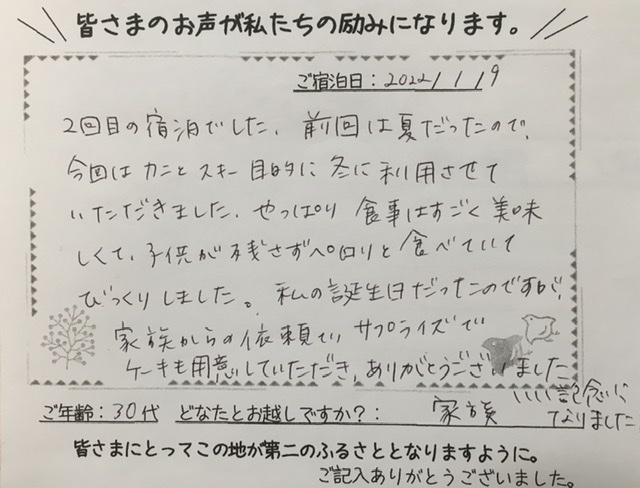 皆さまのお声が私たちの励みになります。
ご宿泊日：2022/1/19
2回目の宿泊でした。前回は夏だったので、
今回はカニとスキー目的に冬に利用させて
いただきました。やっぱり食事はすごく美味
しくて、子供が残さずペロリと食べていて
びっくりしました。私の誕生日だったのですが、
家族からの依頼でサプライズで
ケーキも用意していただき、ありがとうございました
いい記念に
なりました
ご年齢：30代 どなたとお越しですか？： 家族
皆さまにとってこの地が第二のふるさととなりますように。
ご記入ありがとうございました。